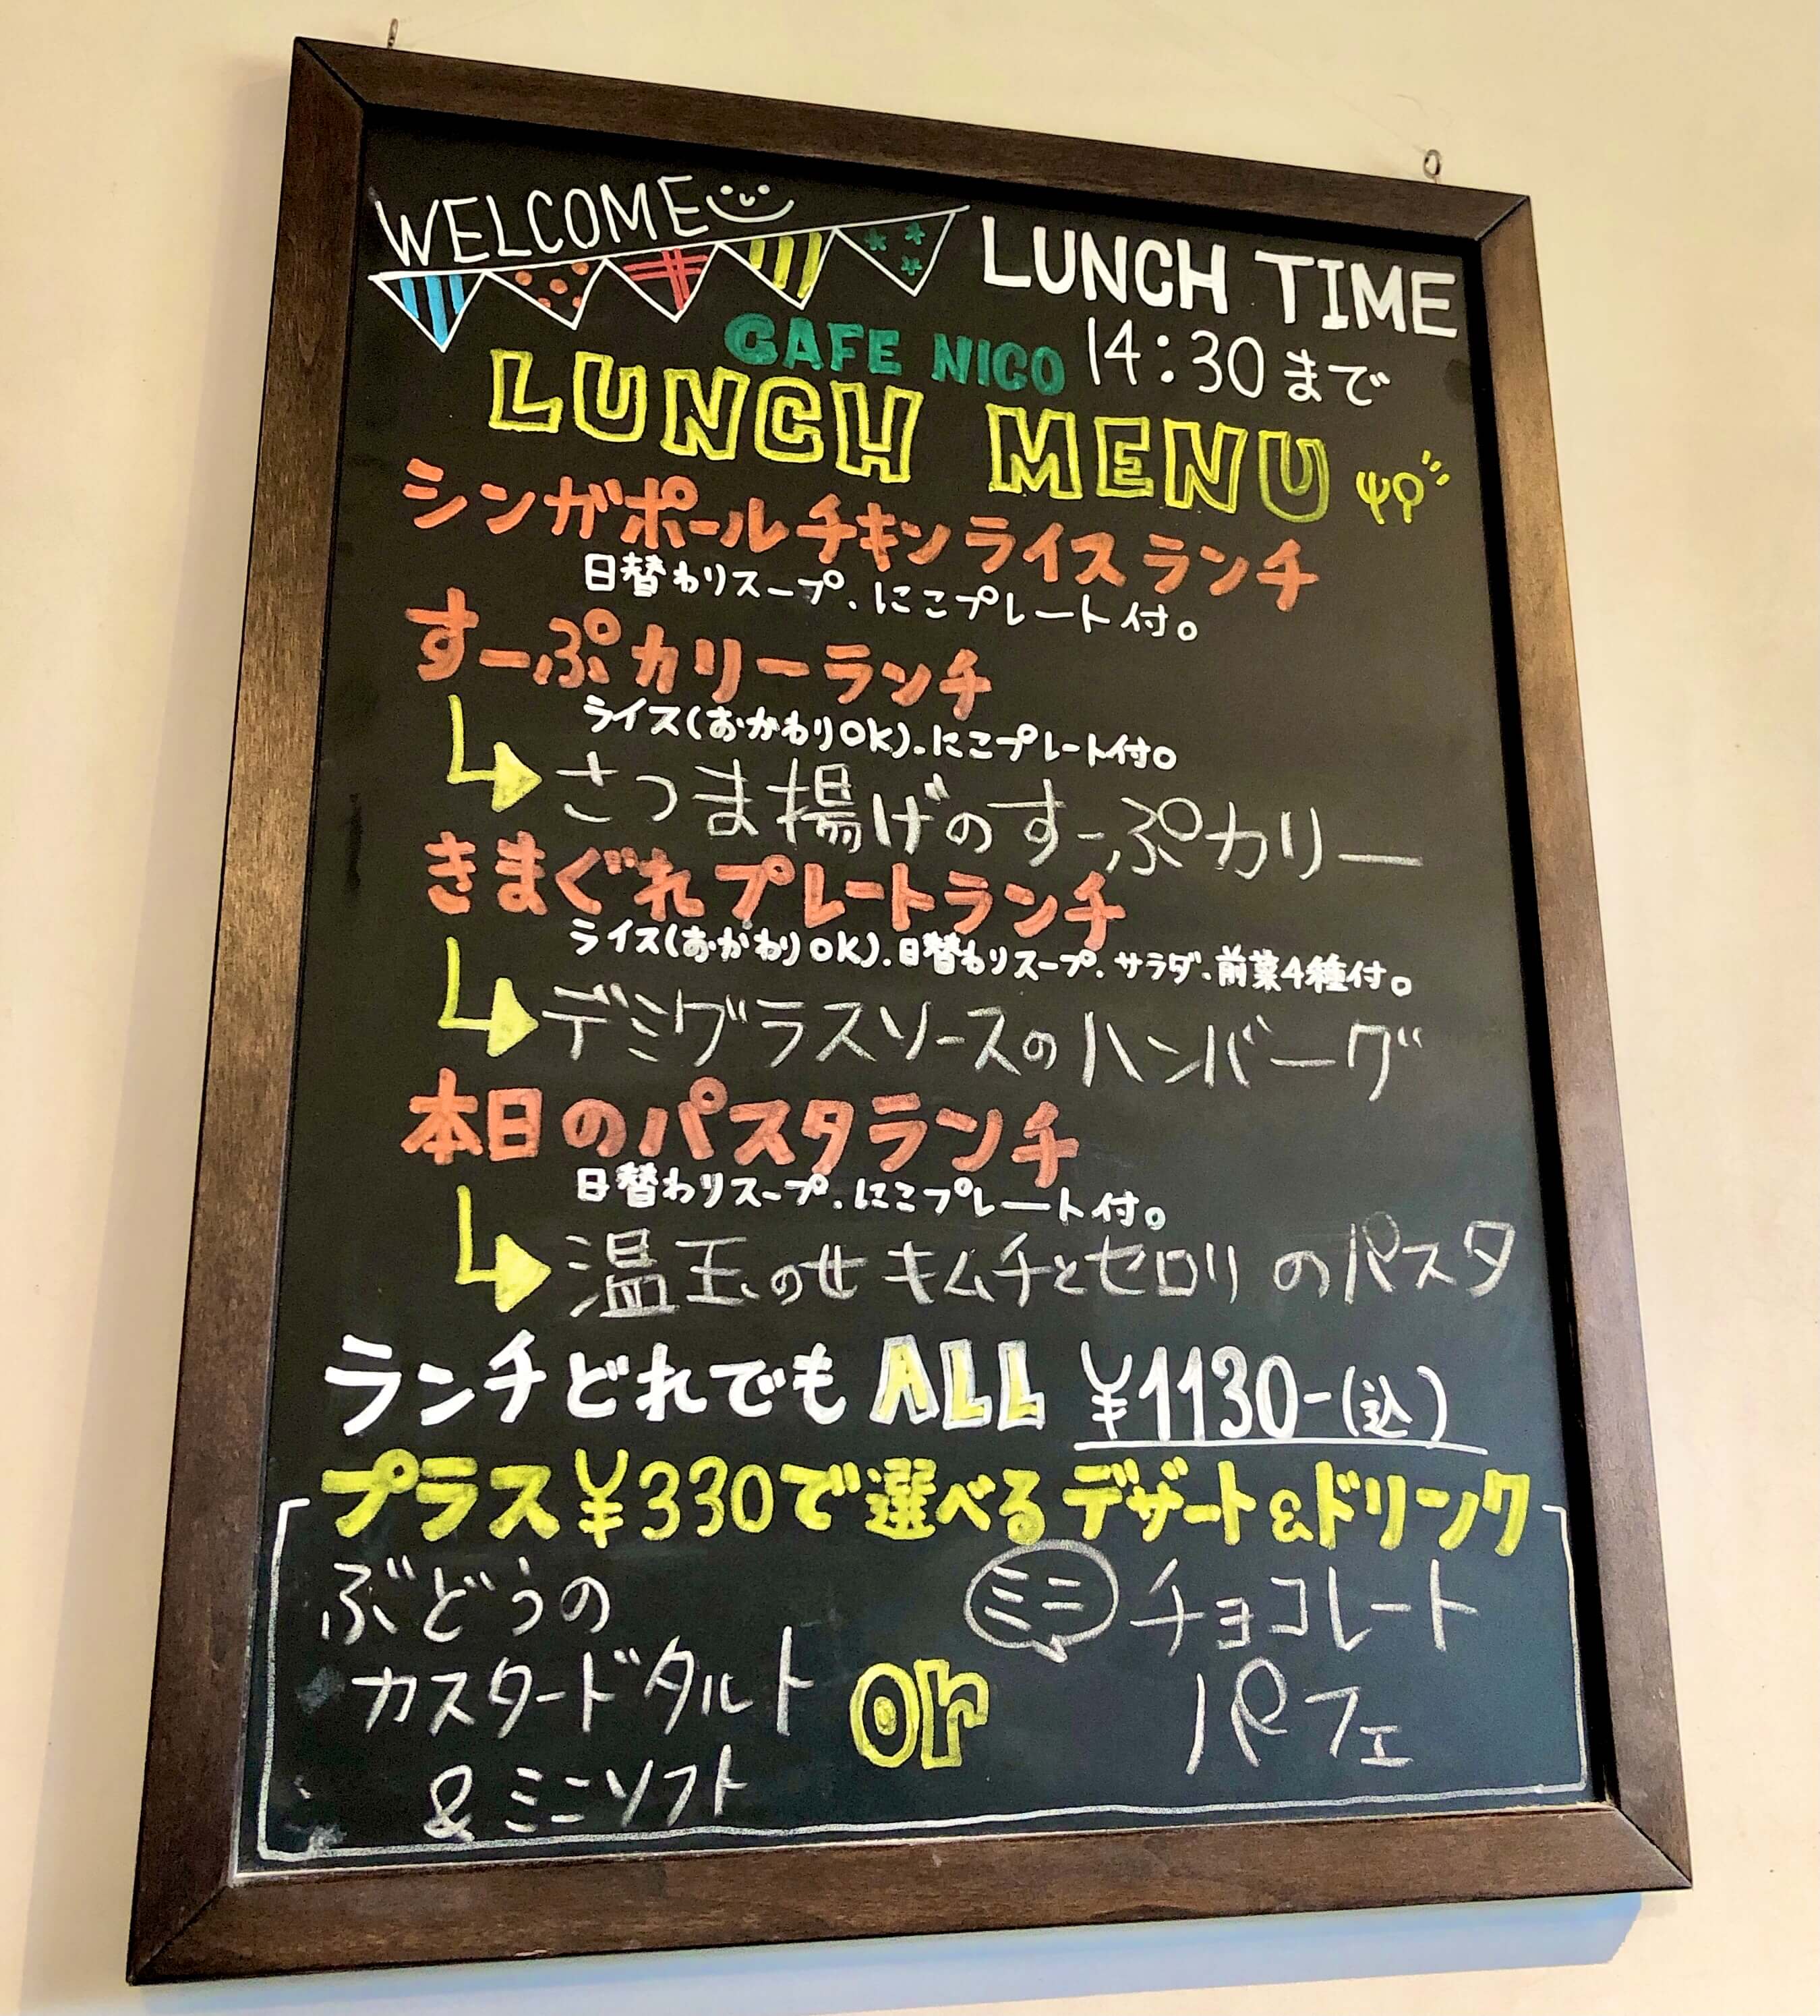 WELCOME
LUNCH TIME
CAFE NICO 14:30まで
LUNCH MENU
シンガポールチキンライスランチ
日替わりスープ、にこプレート付。
すーぷカリーランチ
ライス(おかわりOK)、にこプレート付。
さつま揚げのすーぷカリー
きまぐれプレートランチ
ライス(おかわりOK)、日替わりスープ、サラダ、前菜4種付。
デミグラスソースのハンバーグ
本日のパスタランチ
日替わりスープ、にこプレート付。
温玉のせキムチとセロリのパスタ
ランチどれでもALL ¥1130-(込)
プラス¥330で選べるデザート&ドリンク
ぶどうの
カスタードタルト
&ミニソフト
or
ミニ チョコレート
パフェ